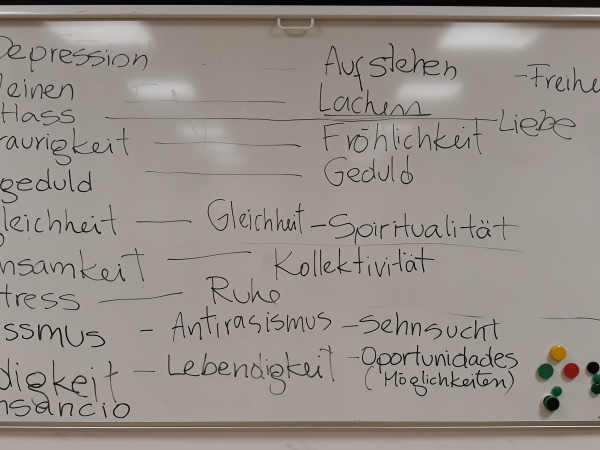 Depression Aufstehen -Freihe
einen Lachenn
Hass Liebe
raurigkeit Fröhlichkeit
geduld Geduld
leichheit Gleichheit - Spiritualität
nsamkeit Kollektivität
tress Ruhe
ssmus - Antirasismus - Sehnsucht
digkeit - Lebendigkeit - Oportunidades
nsancio (Möglichkeiten)